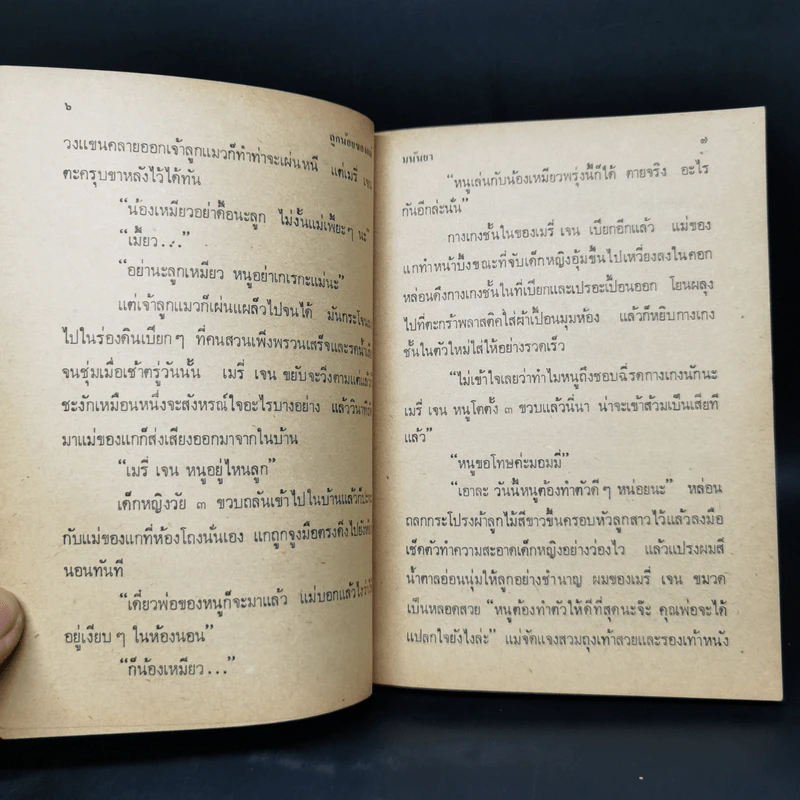 ๖
ลูกน้อยของแม่
วงแขนคลายออกเจ้าลูกแมวก็ทำท่าจะเผ่นหนี แต่เมรี่ เจน
ตะครุบขาหลังไว้ได้ทัน
“น้องเหมียวอย่าดื้อนะลูก ไม่งั้นแม่เพี้ยะๆ นะ”
“เมี้ยว...”
“อย่านะลูกเหมียว หนูอย่าเกเรกะแม่นะ”
แต่เจ้าลูกแมวก็เผ่นแผล็วไปจนได้ มันกระโจน
ไปในร่องดินเปียกๆ ที่คนสวนเพิ่งพรวนเสร็จและรดน้ำ
จนชุ่มเมื่อเช้าตรู่วันนั้น เมรี่ เจน ขยับจะวิ่งตามแต่แล้ว
ชะงักเหมือนหนึ่งจะสังหรณ์ใจอะไรบางอย่าง แล้ววินาที
มาแม่ของแกก็ส่งเสียงออกมาจากในบ้าน
“เมรี่ เจน หนูอยู่ไหนลูก”
เด็กหญิงวัย ๓ ขวบถลันเข้าไปในบ้านแล้วก็
กับแม่ของแกที่ห้องโถงนั่นเอง แกถูกจูงมือตรงดิ่งไปยัง
นอนทันที
“เดี๋ยวพ่อของหนูก็จะมาแล้ว แม่บอกแล้วไงว่า
อยู่เงียบๆ ในห้องนอน”
“ก็น้องเหมียว...”
มนันยา
๗
“หนูเล่นกับน้องเหมียวพรุ่งนี้ก็ได้ ตายจริง อะไร
กันอีกล่ะนั่น”
กางเกงชั้นในของเมรี่ เจน เปียกอีกแล้ว แม่ของ
แกทำหน้าบึ้งขณะที่จับเด็กหญิงอุ้มขึ้นไปเหวี่ยงลงในคอก
หล่อนดึงกางเกงชั้นในที่เปียกและเปรอะเปื้อนออก โยนผลุง
ไปที่ตะกร้าพลาสติคใส่ผ้าเปื้อนมุมห้อง แล้วก็หยิบกางเกง
ชั้นในตัวใหม่ใส่ให้อย่างรวดเร็ว
“ไม่เข้าใจเลยว่าทำไมหนูถึงชอบฉี่รดกางเกงนักนะ
เมรี่ เจน หนูโตตั้ง ๓ ขวบแล้วนี่นา น่าจะเข้าส้วมเป็นเสียที
แล้ว”
“หนูขอโทษค่ะมอมมี่”
“เอาละ วันนี้หนูต้องทำตัวดีๆ หน่อยนะ” หล่อน
ถลกกระโปรงผ้าลูกไม้สีขาวขึ้นครอบหัวลูกสาวไว้แล้วลงมือ
เช็ดตัวทำความสะอาดเด็กหญิงอย่างว่องไว แล้วแปรงผมสี
น้ำตาลอ่อนนุ่มให้ลูกอย่างชำนาญ ผมของเมรี่ เจน ขมวด
เป็นหลอดสวย “หนูต้องทำตัวให้ดีที่สุดนะจ๊ะ คุณพ่อจะได้
แปลกใจยังไงล่ะ” แม่จัดแจงสวมถุงเท้าสวยและรองเท้าหนัง